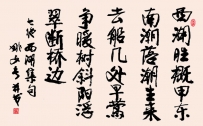 西湖胜概甲东
南湖荡潮生来
去船几处早莺
争暖树斜阳浮
翠断桥边
西湖集句